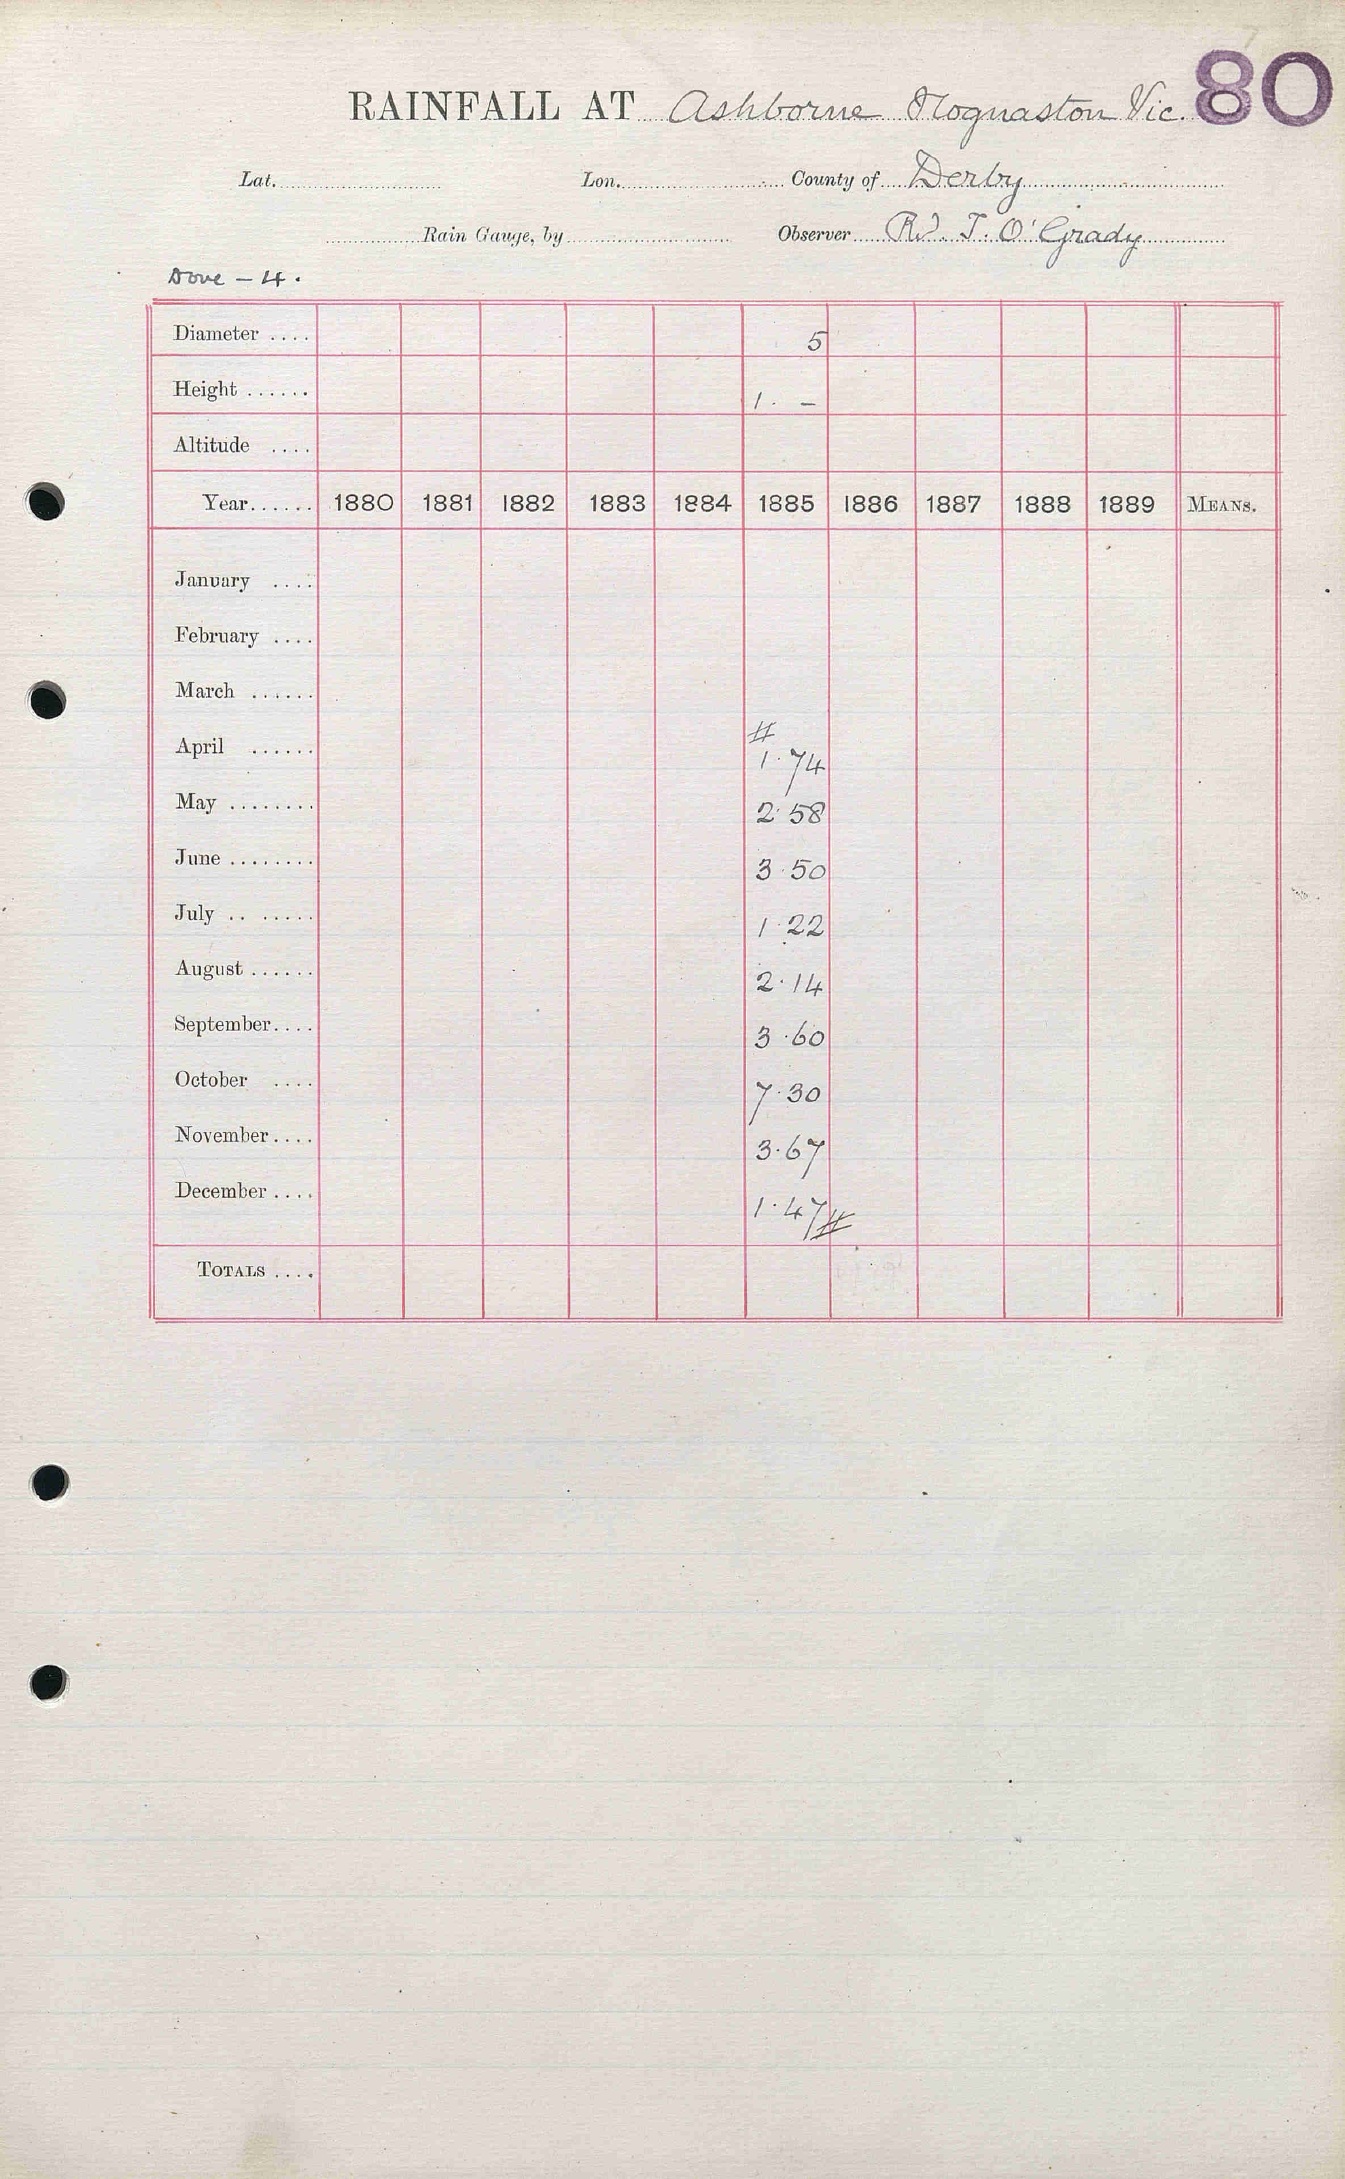 80
RAINFALL AT Ashborne Hognaston Vic.
Lat. Lon. County of Derby
Rain Gauge, by Observer Rd. T. O'Grady
Dove - 4.
Diameter .... 5
Height ...... 1. -
Altitude ....
Year...... 1880 1881 1882 1883 1884 1885 1886 1887 1888 1889 MEANS.
January ....
February ....
March ......
April ...... # 1.74
May ........ 2.58
June ........ 3.50
July .. ..... 1.22
August ...... 2.14
September.... 3.60
October .... 7.30
November.... 3.67
December .... 1.47 #
TOTALS ....